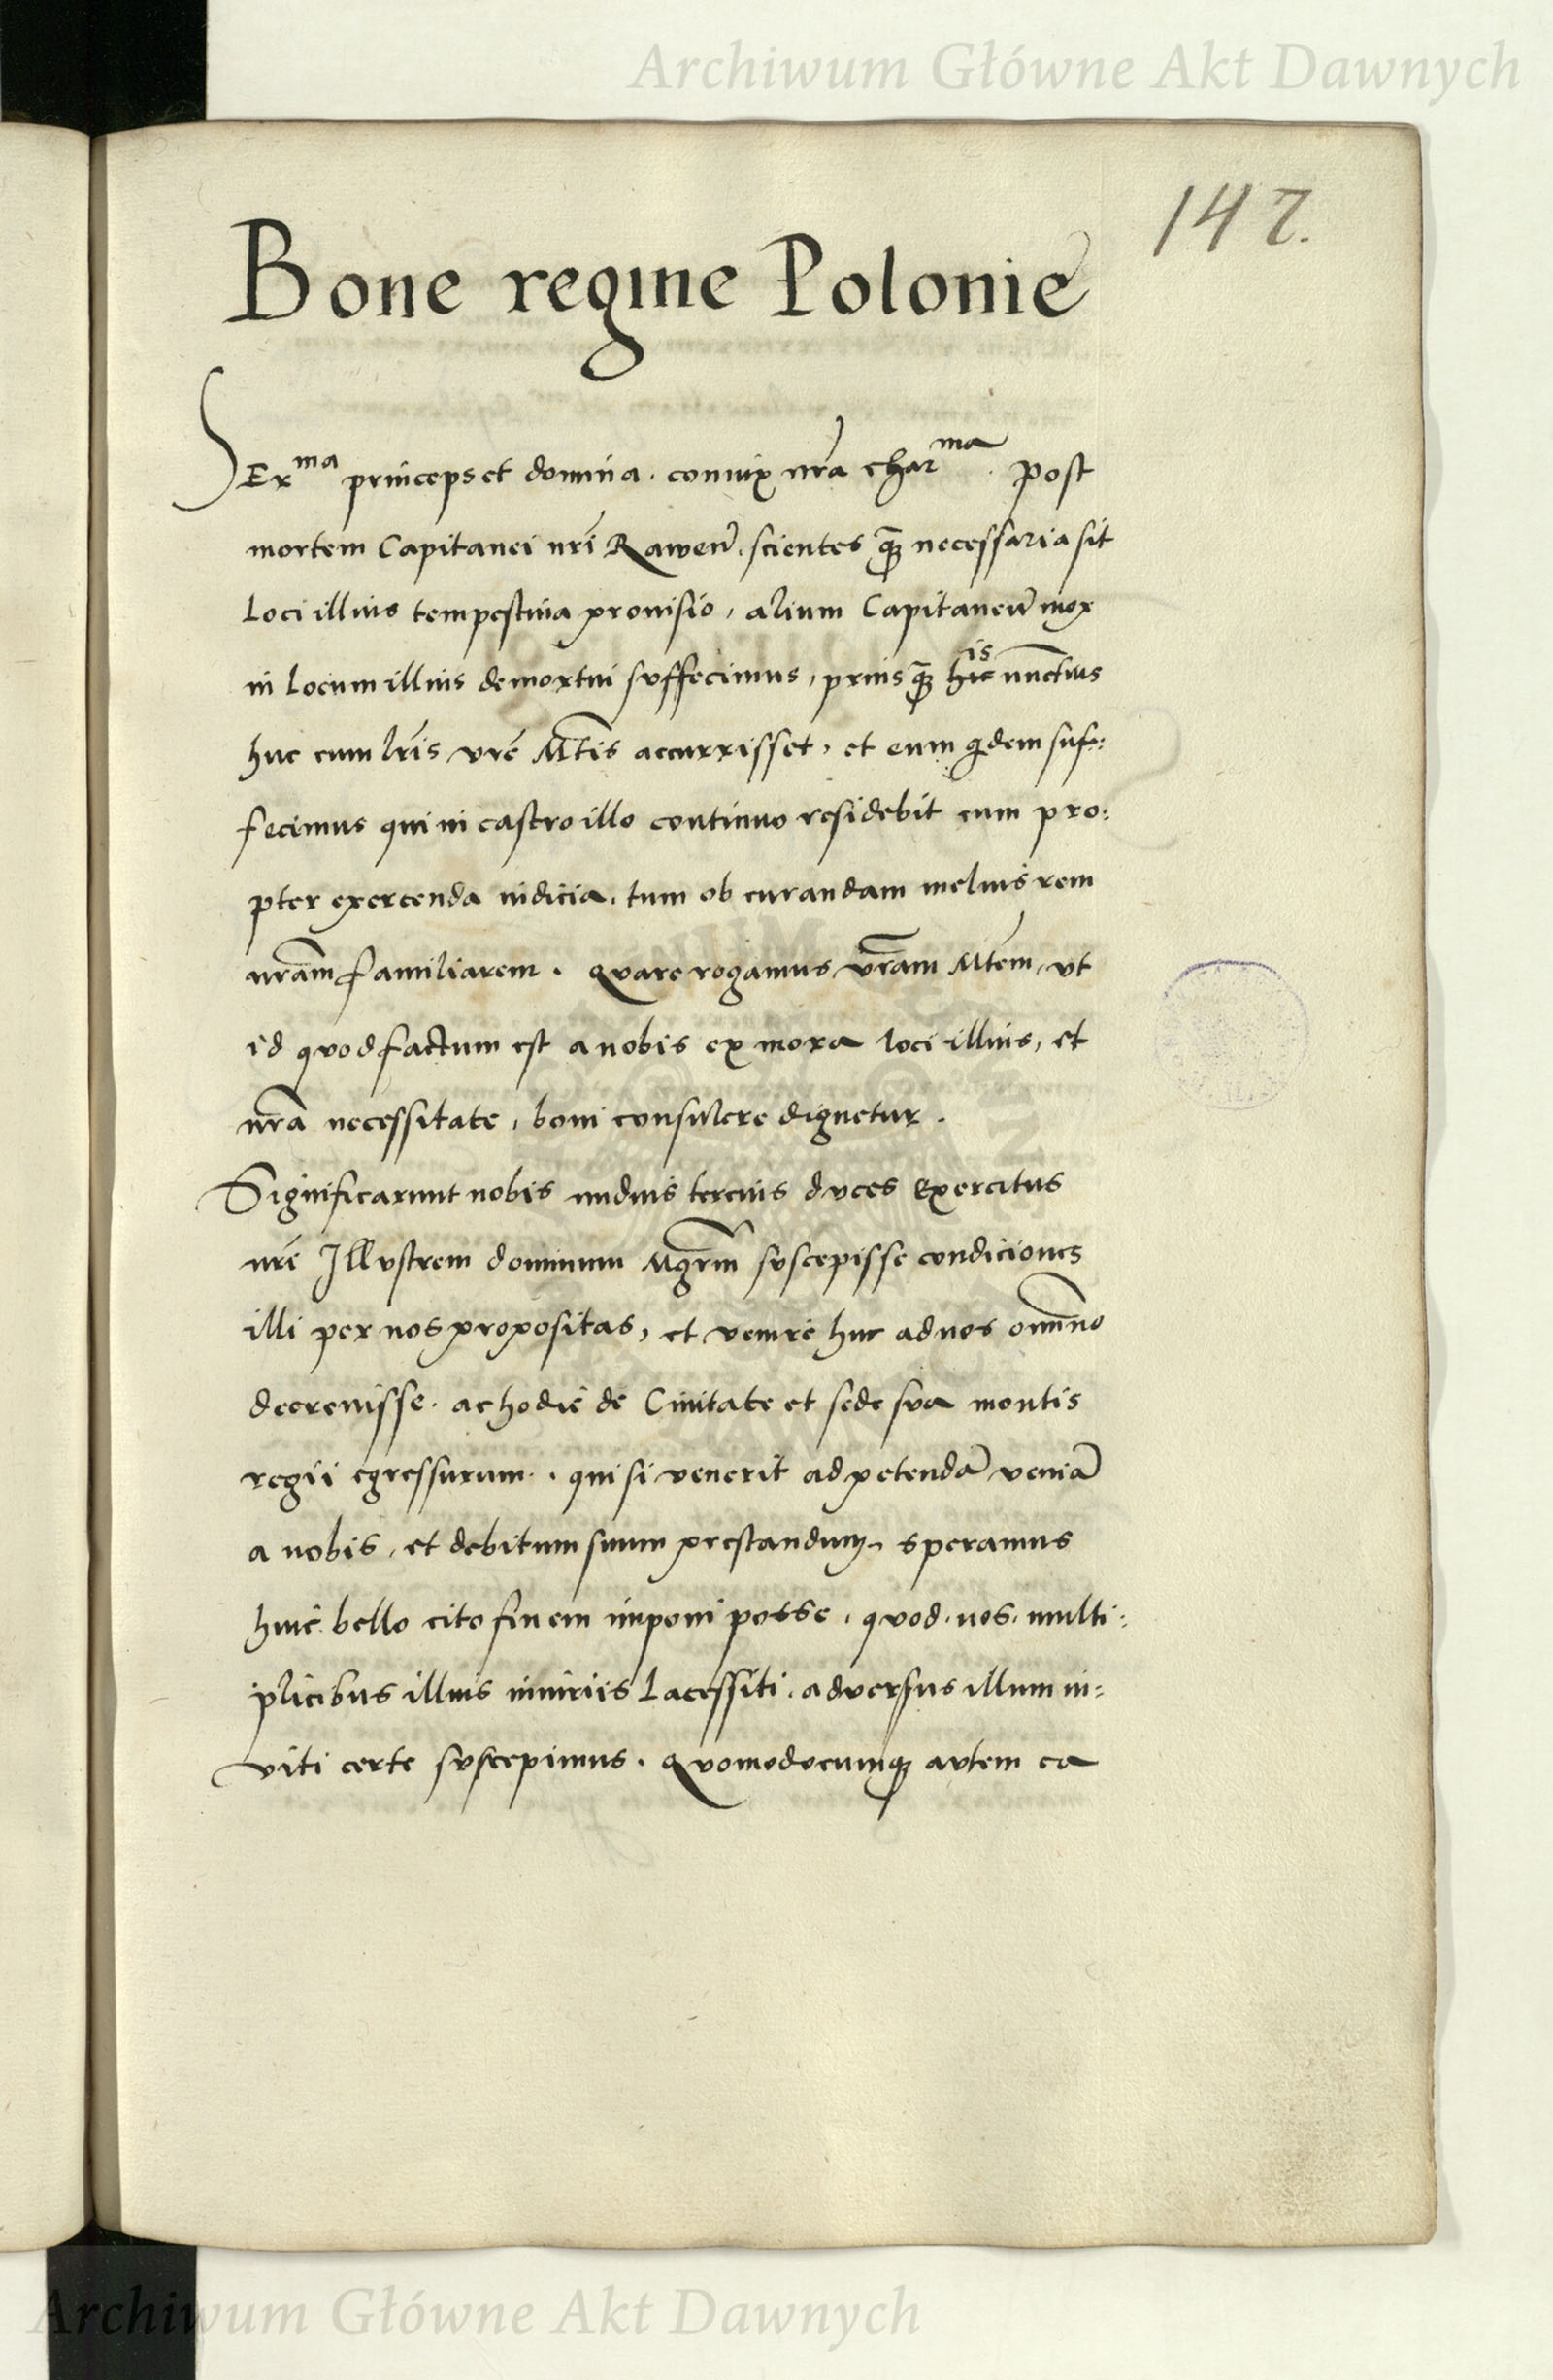 Archiwum Główne Akt Dawnych
147.
Bone regine Polonie
SEr^ma princeps et domina. coniux nr̃a char^ma. Post
mortem Capitanei nrĩ Rawen̄. scientes q̃ꝫ necessaria sit
loci illius tempestiua prouisio, alium Capitaneũ mox
in locum illius demortui svffecimus, prius q̃ꝫ hic is nunctius
huc cum lrĩs vrẽ Mt̃is accurrisset, et eum qdem suf:
fecimus qui in castro illo continuo residebit cum pro:
pter exercenda iudicia. tum ob curandam melius rem
nrãm familiarem. Qvare rogamus vrãm Mt̃em, vt
id qvod factum est a nobis ex mora loci illius, et
nrã necessitate, boni consulere dignetur.
Significarunt nobis nudius tercius dvces Exercitus
nrĩ Illvstrem dominum Mgrm̃ svscepisse condiciones
illi per nos propositas, et venire huc ad nos om̃no
decreuisse. ac hodie de Ciuitate et sede sva montis
regii egressurum. qui si venerit ad petendã veniã
a nobis, et debitum suum prestandum, speramus
huic bello cito finem imponi posse. qvod. nos. multi:
plicibus illius iniuriis lacessiti. adversus illum in:
viti certe svscepimus. Qvomodocumqꝫ avtem ea
Archiwum Główne Akt Dawnych